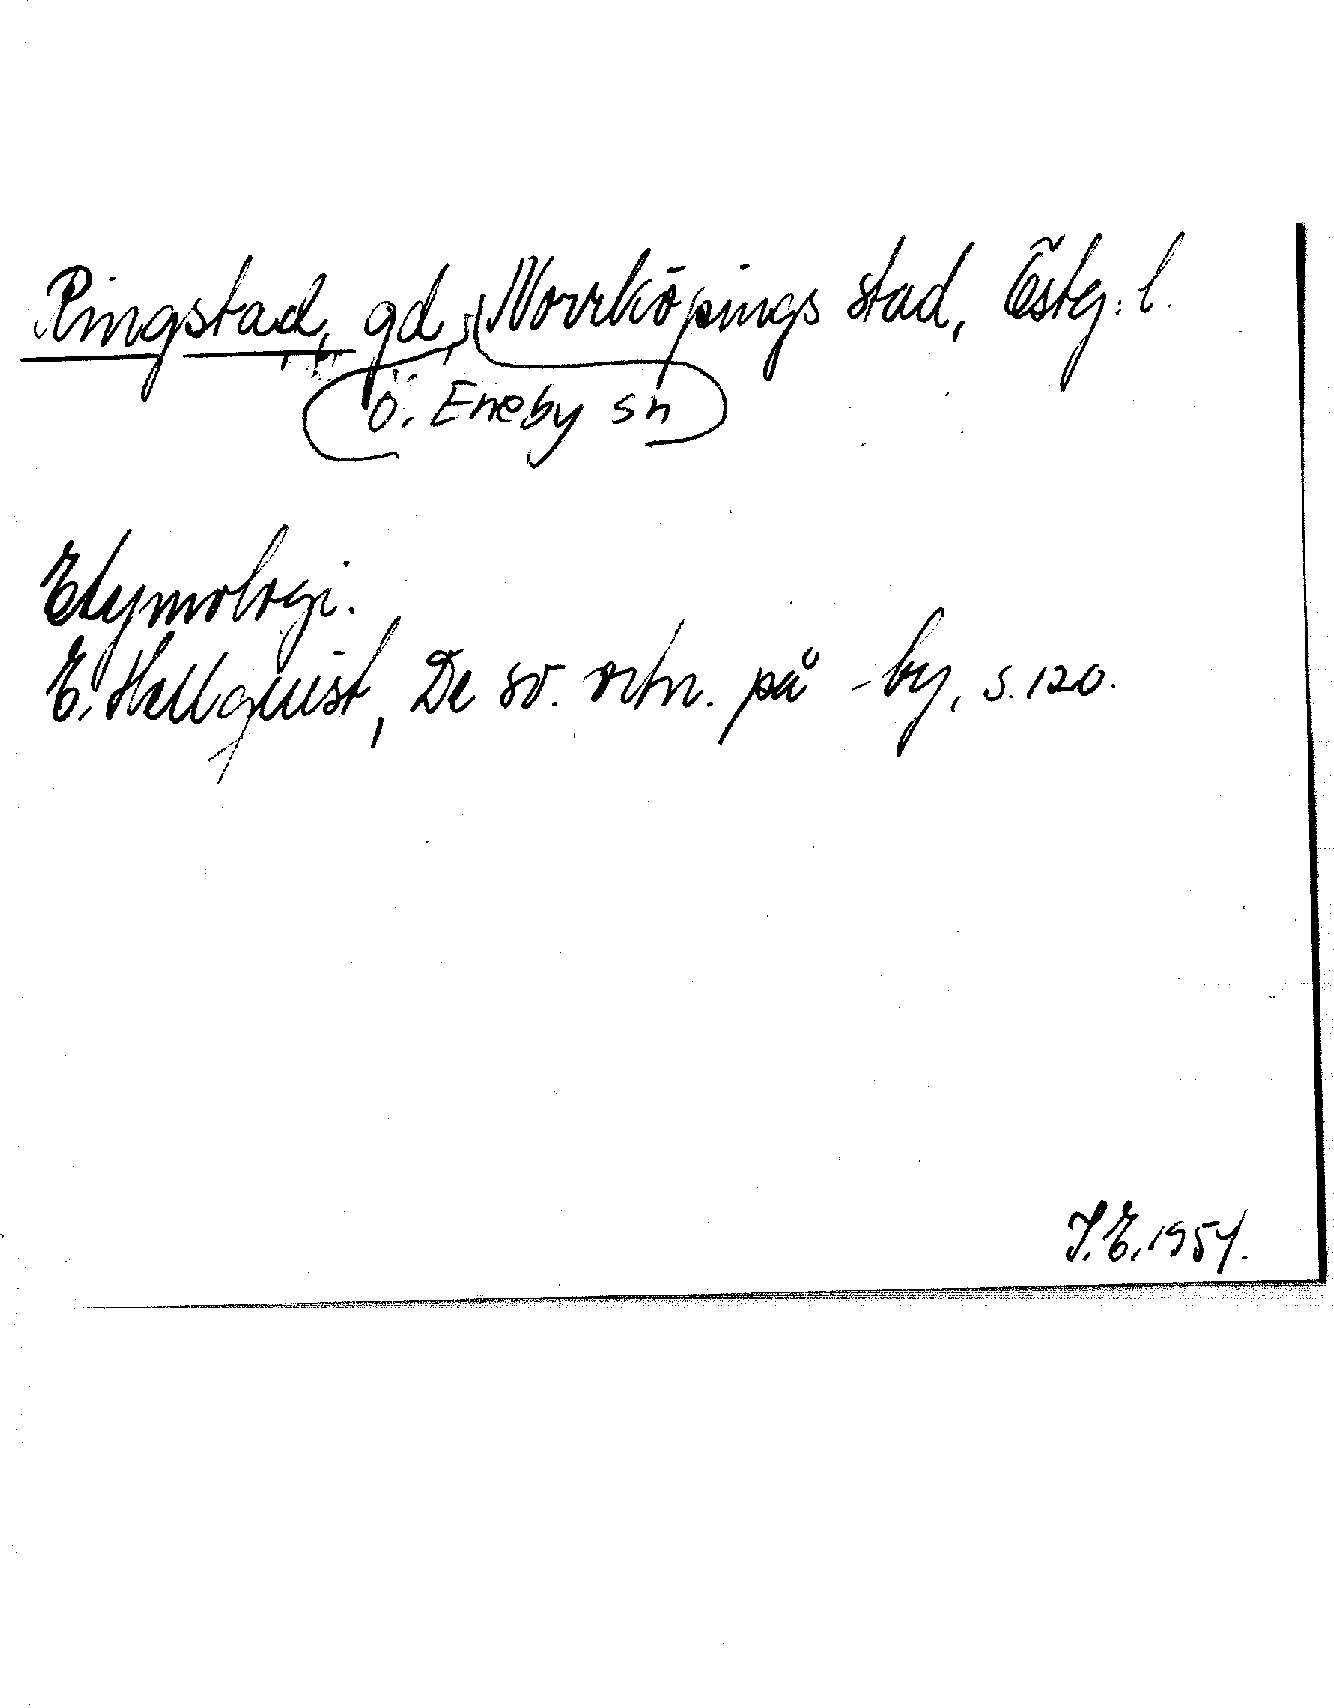 Ringstad, gd, Norrköpings stad, Östg. l.
Ö. Eneby sn
Etymologi.
E. Hellquist, De sv. ortn. på -by, s. 120.
I. E. 1954.